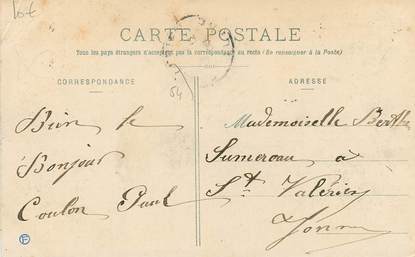 10€
CARTE POSTALE
Tous les pays étrangers n'acceptent pas la correspondance au recto (Se renseigner à la Poste)
CORRESPONDANCE
ADRESSE
54
Bien le
Bonjour
Coulon Paul
Mademoiselle Berthe
Sumereau à
St Valérien
Yonne